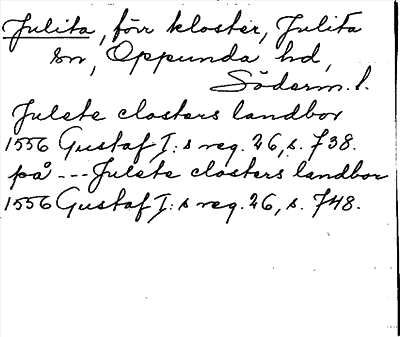 Julita, förr kloster, Julita
sn, Oppunda hd,
Söderm. l.
Julete closters landbor
1556 Gustaf I: s reg. 26, s. 738.
på --- Julete closters landbor
1556 Gustaf I: s reg. 26, s. 748.